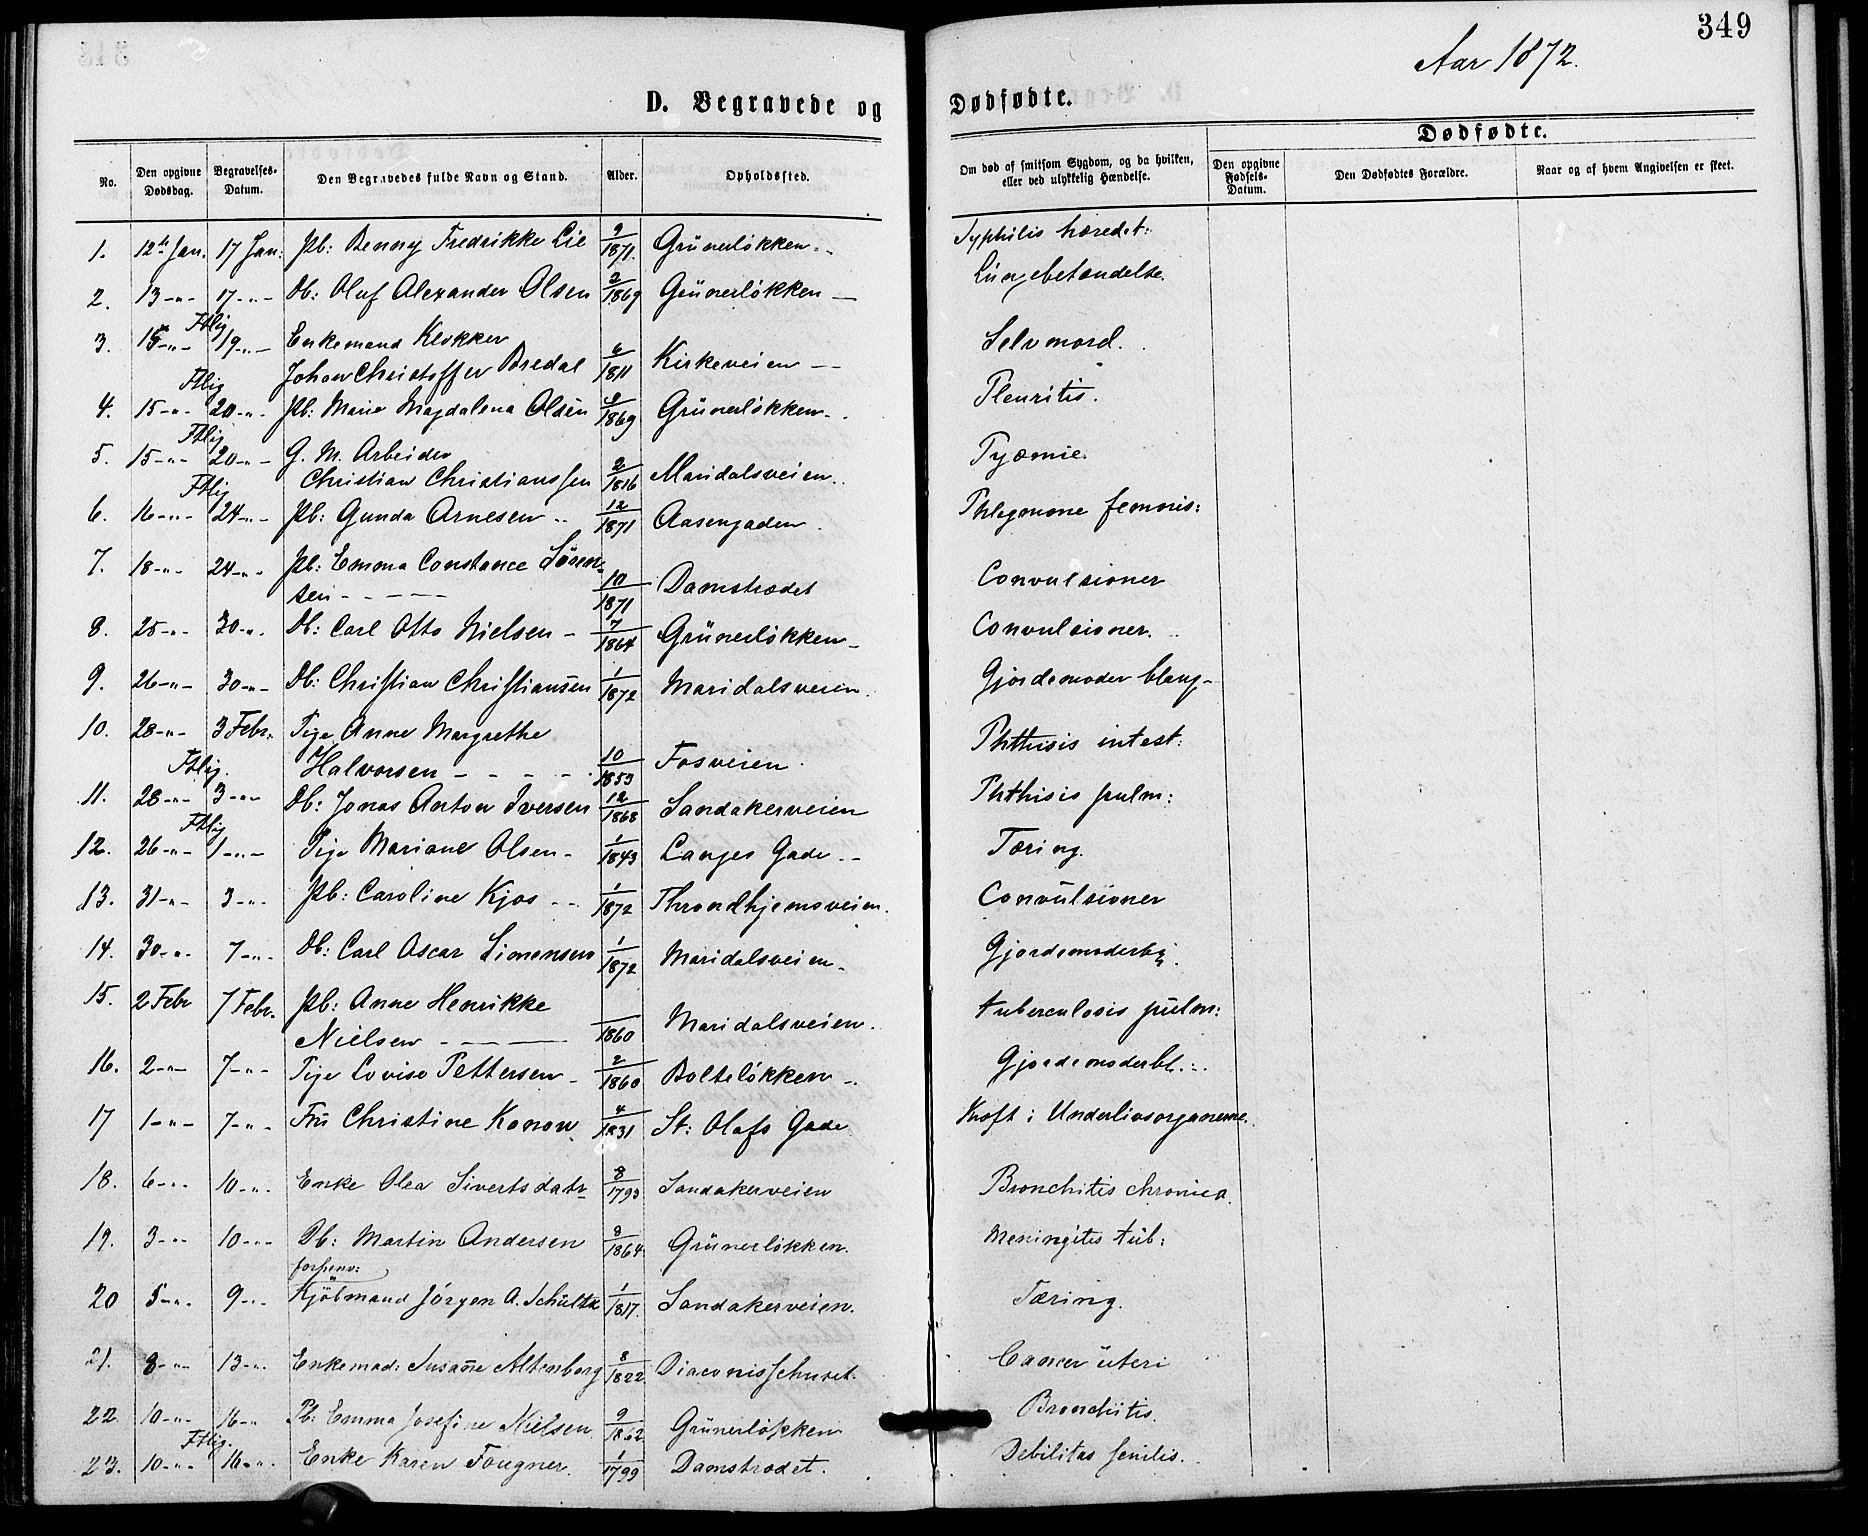 349
Aar 1872.
D. Begravede og Dødfødte.
Dødfødte.
No. Den opgivne Dødsdag. Begravelses-Datum. Den Begravedes fulde Navn og Stand. Alder. Opholdssted. Om død af smitsom Sygdom, og da hvilken, eller ved ulykkelig Hændelse. Den opgivne Fødsels-Datum. Den Dødfødtes Forældre. Naar og af hvem Angivelsen er skeet.
1. 12te Jan. 17 Jan. Pb: Benny Fredrikke Lie 9/1871. Grünerløkken Syphilis hæredet:
2. 13 -"- 17 -"- Db: Oluf Alexander Olsen 2/1869 Grünerløkken Lungebetændelse.
3. 15 -"- Ftlig 19 -"- Enkemand Klokker
Johan Christoffer Bredal 6/1811 Kirkeveien Selvmord.
Ftlig
4. 15 -"- 20 -"- Pb: Marie Magdalena Olsen 9/1869 Grünerløkken Pleuritis.
Ftlig
5. 15 -"- 20 -"- G. M. Arbeider
Christian Christianssen 2/1816 Maridalsveien Pyæmie.
Ftlig
6. 16 -"- 24 -"- Pb: Gunda Arnesen 12/1871 Aasengaden Phlegmone femoris:
7. 18 -"- 24 -"- Pb: Emma Constance Søren-
sen 10/1871 Damstrædet Convulsioner
8. 25 -"- 30 -"- Db: Carl Otto Nielsen 7/1864 Grünerløkken Convulsioner.
9. 26 -"- 30 -"- Db: Christian Christiansen 1/1872 Maridalsveien Gjordemoder
10. 28 -"- 3 Febr. Pige Anne Margrethe
Halvorsen 10/1853 Fosveien Phthisis intest:
Ftlig.
11. 28 -"- 3 -"- Db: Jonas Anton Iversen 12/1868 Sandakerveien Phthisis pulm:
Ftlig
12. 26 -"- 1 -"- Pige Mariane Olsen 1/1843 Langes Gade Tæring.
13. 31 -"- 3 -"- Pb: Caroline Kjos 1/1872 Throndhjemsveien. Convulsioner
14. 30 -"- 7 -"- Db: Carl Oscar Simensen 1/1872 Maridalsveien
15. 2 Febr 7 Febr. Pb: Anne Henrikke
Nielsen /1860 Maridalsveien tuberculosis pulm:
16. 2 -"- 7 -"- Pige Lovise Pettersen 2/1860 Bolteløkken Gjordemoderbl.
17 1 -"- 7 -"- Fru Christine Konow 4/1831 St: Olafs Gade Kræft i Underlivsorganerne.
18. 6 -"- 10 -"- Enke Olea Sivertsdatr 8/1793 Sandakerveien Bronchitis chronica.
19. 3 -"- 10 -"- Db: Martin Andersen 8/1864 Grünerløkken. Meningites tub:
forhenv:
20 5 -"- 9 -"- Kjøbmand Jörgen A. Schultz 1/1817. Sandakerveien. Tæring.
21. 8 -"- 13 -"- Enkemad: Susañe Altenborg 8/1822 Diaconissehuset. Cancer uteri
22 10 -"- 16 -"- Pb: Emma Josefine Nielsen 9/1862 Grünerløkken Bronchitis.
Ftlig.
23. 10 -"- 16 -"- Enke Karen Fougner. 1/1799 Damstrædet. Debilitas senilis.